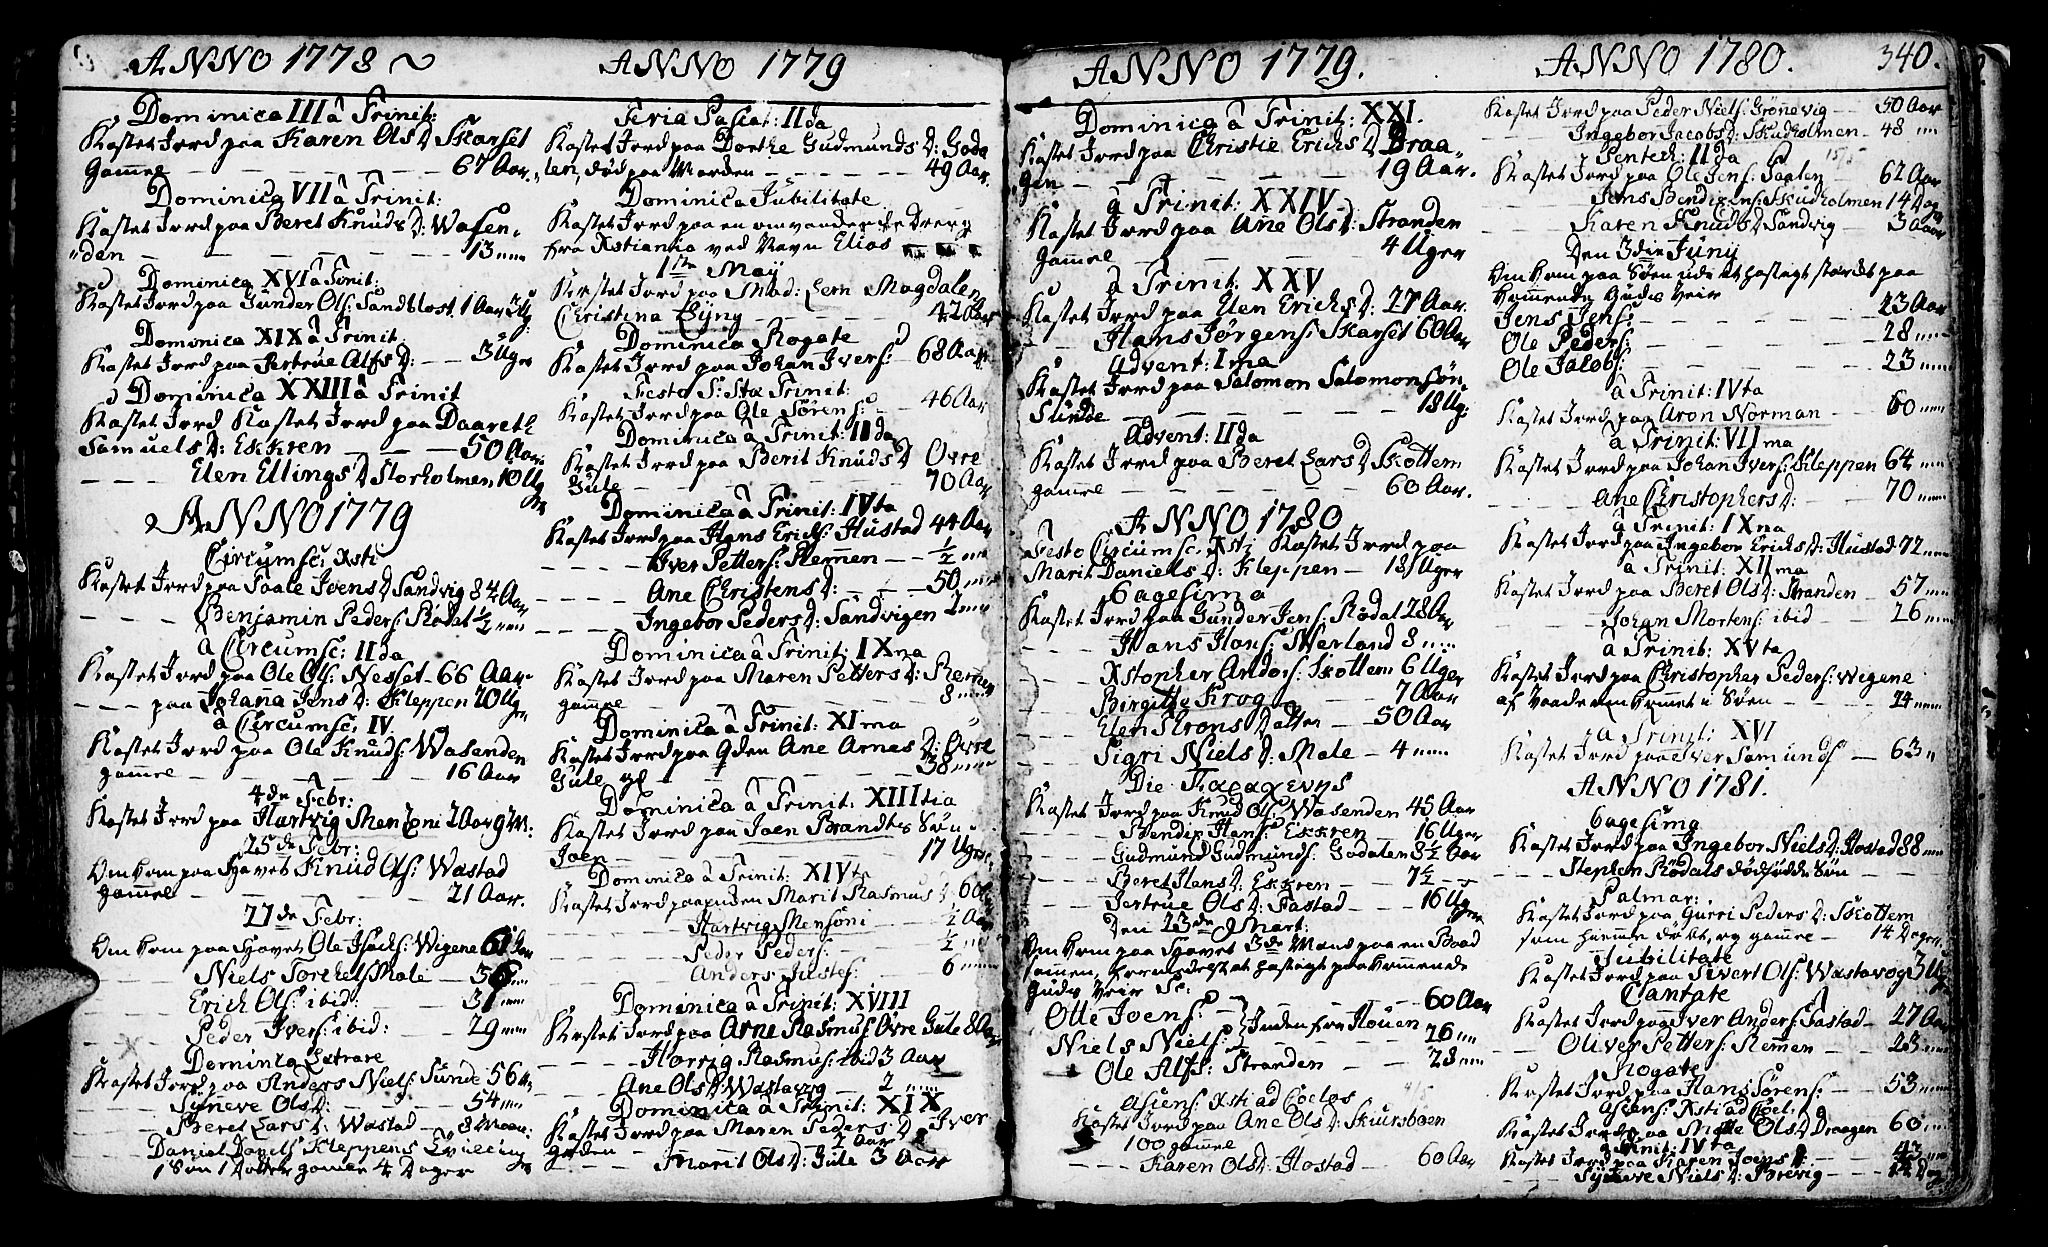 ANNO 1778
Dominica III â Trinit:
Kastet Jord paa Karen Ols D Skarset
gamel — 67 Aar.
Dominica VII â Trinit:
Kastet Jord paa Beret Knuds D: Wasen„
„den — 13 „
Dominica XVI â Trinit:
Kastet Jord paa Gunder Ols: Sandblost 1 Aar
Dominica XIX â Trinit
Kastet Jord paa Jertrue Alfs D: — 3 Uger
Dominica XXIII â Trinit
Kastet Jord Kastet Jord paa Daareth
Samuels D: Ekkren — 50 Aar
— Elen Ellings D Storholmen 10 Ug
ANNO 1779
Circumsc: Xsti
Kastet Jord paa Joens D Sandvig 84 Aar
— Benjamin Peders: Rødal ½ „
â Circumsc: II da
Kastet Jord paa Ole Ols: Nesset 66 Aar
— paa Johana Jens D: Kleppen 20 Ug
â Circumsc: IV
Kastet Jord paa Ole Knuds: Wasenden
gamel — 16 Aar
4de Febr:
Kastet Jord paa Hartvig Menzoni 2 Aar 9 M:
25de Febr:
Om kom paa Havet Knud Ols: Wastad
gamel — 21 Aar.
27de Febr:
Om kom paa Havet Ole Isachs: Wigene 61 Aar
Niels Torkels Male — 36 „
Erich Ols: ibid: — 31 „
Peder Ivers: ibid: — 29 „
Dominica Estrare
Kastet Jord paa Anders Niels: Sunde 56 A
— Syneve Ols D: — 54 „
— Beret Lars D: Wastad — 8 Maan:
Daniel Daniels Kleppens Tvilling
1 Søn 1 Datter gamle 4 Dager
ANNO 1779
Feria Pascat: II da
Kastet Jord paa Dorthe Gudmunds D: Goda
„len, død paa Warden — 49 Aar.
Dominica Jubilitate
Kastet Jord paa en omvandrende Dreng
fra Xstiania ved Navn Elias
1ste Maij
Kastet Jord paa Mad: Lem Magdalen
Christina Byng — 42 Aar
Dominica Rogate
Kastet Jord paa Johan Ivers: 68 Aar
Festo S: Stæ Trinit:
Kastet Jord paa Ole Sørens: — 46 Aar
Dominica â Trinit: II da
Kastet Jord paa Berit Knuds D Øvre
Gule — 70 Aar
Dominica â Trinit: IV ta
Kastet Jord paa Hans Erichs: Hustad 44 Aar
— Iver Petters: Remen — ½ „
— Ane Christens D: — 50 „
— Ingebor Peders D: Sandvigen 2 „
Dominica â Trinit: IX na
Kastet Jord paa Maren Petters D: Remen
gamel — 8 „
Dominica â Trinit: XI ma
Kastet Jord paa Qden Ane Arnes D: Øvre
Gule gl — 38 „
Dominica â Trinit: XIII tia
Kastet Jord paa Joen Brandtes Søn
Joen — 17 Uger
Dominica â Trinit: XIV ta
Kastet Jord paa Marit Rasmus D 60
Hartvig Menzoni — ½ Aar
Peder Peders: — ½ „
Anders Justes: — 6 „
Dominica â Trinit: XVIII
Kastet Jord paa Arne Rasmus: Øvre Gule 8 Aar
— Rasmus: ibid 3 Aar
— Ane Ols D: Wastavog — 2 „
Dominica â Trinit: XIX
Kastet Jord paa Maren Peders D: Iver
gaden — 2 Aar
— Marit Ols D: Gule 3 Aar
ANNO 1779.
Dominica â Trinit: XXI.
Kastet Jord paa Christie Erichs D Draa„
„gen — 19 Aar.
â Trinit: XXIV
Kastet Jord paa Ane Ols D: Stranden
gamel — 4 Uger
â Trinit: XXV
Kastet Jord paa Elen Erichs D: 27 Aar.
— Hans Jørgens: Skarset 60 Aar
Advent: I ma
Kastet Jord paa Salomon Salomonsøn
Sunde — 18 Ug:
Advent: II da
Kastet Jord paa Beret Lars D Skottem
gamel — 60 Aar.
ANNO 1780
Festo Circumsc: Xsti Kastet Jord paa
Marit Daniels D: Kleppen — 18 Uger
6agesima
Kastet Jord paa Gunder Jens: Rødal 28 Aar
— Hans Hans: Werland 8 „
— Xstopher Anders: Skottem 6 Uger
— Birgitte Krog — 7 Aar
— Elen Krons Datter — 50 Aar
— Sigri Niels D: Male — 4 „
Die Παρασκευης
Kastet Jord paa Knud Ols: Wasenden 45 Aar
— Bendix Hans: Ekkren — 16 Uger
— Gudmund Gudmunds: Godalen 8½ Aar
— Beret Hans D: Ekkren — 7½ —
— Jertrue Ols D: Fastad — 16 Uger
Den 23de Mart:
Om kom paa Havet 3de Mand paa en Baad
samen, formedelst et hastigt paakommende
Guds Veir Sc:
Olle Joens: — 60 Aar
Niels Niels: } Inden fra Houen — 26 „
Ole Alfs: Stranden — 28 „
Ascens: Xsti ad Coelos 4/5
Kastet Jord paa Ane Ols D: Skursboen
100 gamel
— Karen Ols D: Hostad — 60 Aar
ANNO 1780. 340.
Kastet Jord paa Peder Niels: Grønevig — 50 Aar
— Ingebor Jacobs D: Skudholmen — 48 „
Pentech: II da 15/5
Kastet Jord paa Ole Jens: — 62 Aar
— Jens Bendixens: Skudholmen 14 Dag
— Karen Knuds D Sandvig — 3 Aar
Den 3die Junij
Om kom paa Søen ude et hastigt stærkt paa
kommende Guds Veir
Jens Jens: — 23 Aar
Ole Peders: — 28 „
Ole Jacobs: — 23 „
â Trinit: IV ta
Kastet Jord paa Aron Norman — 60 „
â Trinit: VII ma
Kastet Jord paa Johan Ivers: Kleppen 64 „
— Ane Christophers D: — 70 „
â Trinit: IX na
Kastet Jord paa Ingebor Erichs D: Hustad 72 „
â Trinit: XII ma
Kastet Jord paa Beret Ols D: Stranden — 57 „
— Johan Mortens: ibid — 26 „
â Trinit: XV ta
Kastet Jord paa Christopher Peders: Wigene
af Vaade omkommet i Søen — 24 „
â Trinit: XVI
Kastet Jord paa Iver Samunds: — 63 „
ANNO 1781.
6agesima
Kastet Jord paa Ingebor Niels D: Hostad 88 „
— Stephen Rødals dødfødde Søn —
Palmar:
Kastet Jord paa Gurri Peders D: Skottem
som hieme døbt, og gamel — 14 Dager.
Jubilitate
Kastet Jord paa Sivert Ols: Wastavog 3 Ug
Cantate
Kastet Jord paa Iver Anders: Fastad — 27 Aar
— Oliver Petters: Remen — 23 „
Rogate
Kastet Jord paa Hans Sørens: — 53 „
Ascens: Xsti ad Coel:
Kastet Jord paa Mette Ols D Draagen 60 „
â Trinit: IV ta
Kastet Jord paa Karen Joens D: — 43 „
— Syneve Niels D: Brevig — 14 Dag